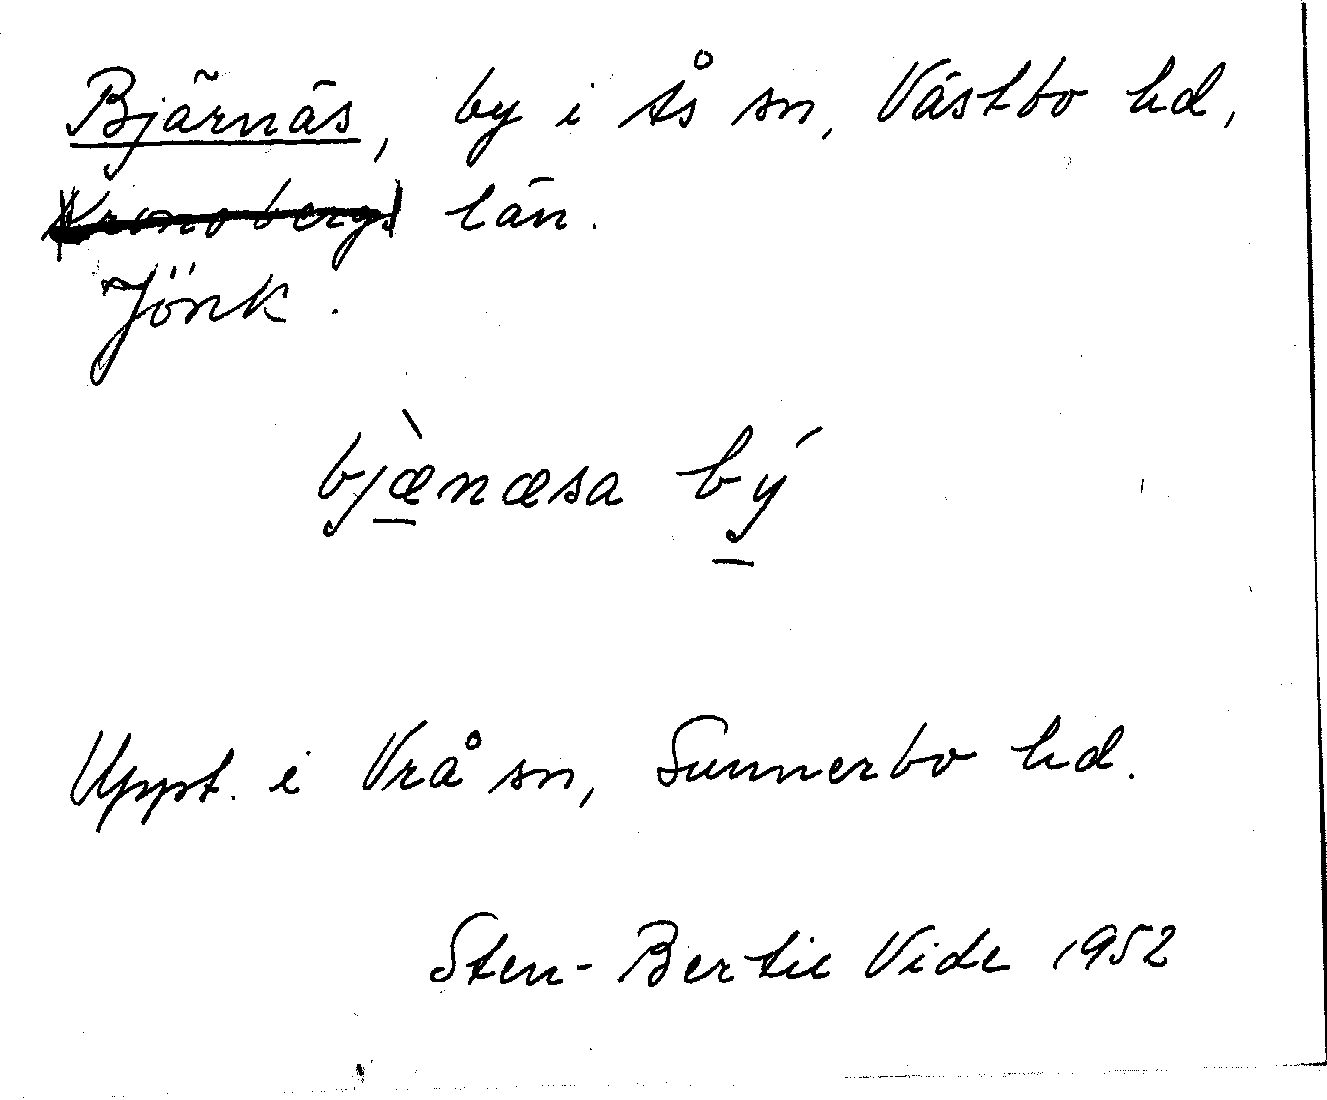 Bjärnäs, by i Ås sn, Västbo hd,
Kronobergs län.
Jönk.
bjæ̀næsa bý
Uppt. i Vrå sn, Sunnerbo hd.
Sten-Bertil Vide 1952